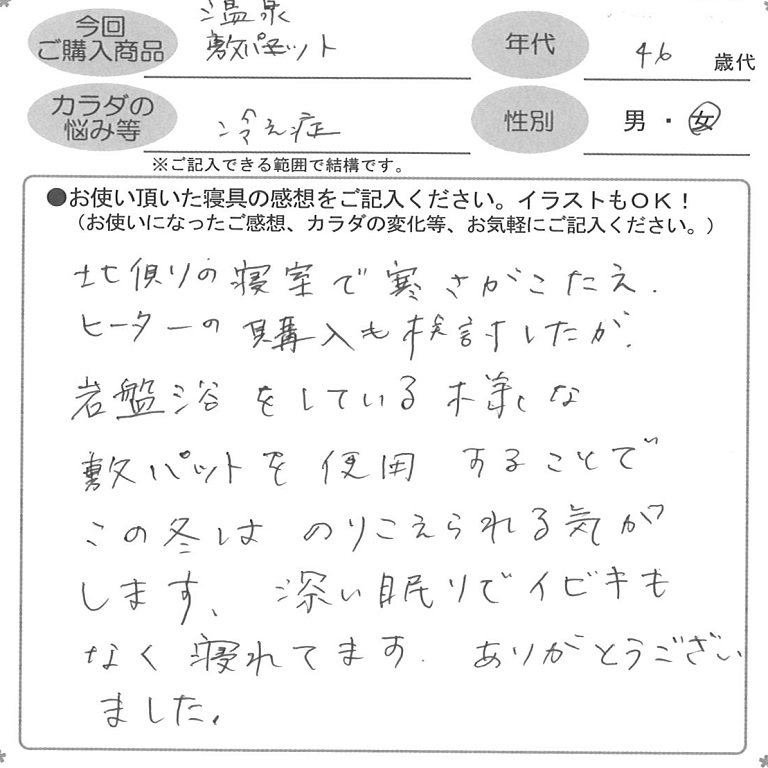 今回
ご購入商品
温泉
敷パット
年代
46 歳代
カラダの
悩み等
冷え症
性別
男・女
※ご記入できる範囲で結構です。
●お使い頂いた寝具の感想をご記入ください。イラストもOK!
(お使いになったご感想、カラダの変化等、お気軽にご記入ください。)
北側りの寝室で寒さがこたえ、
ヒーターの購入も検討したが、
岩盤浴をしている様な
敷パットを使用することで
この冬はのりこえられる気が
します、深い眠りでイビキも
なく寝れてます。ありがとうござい
ました。